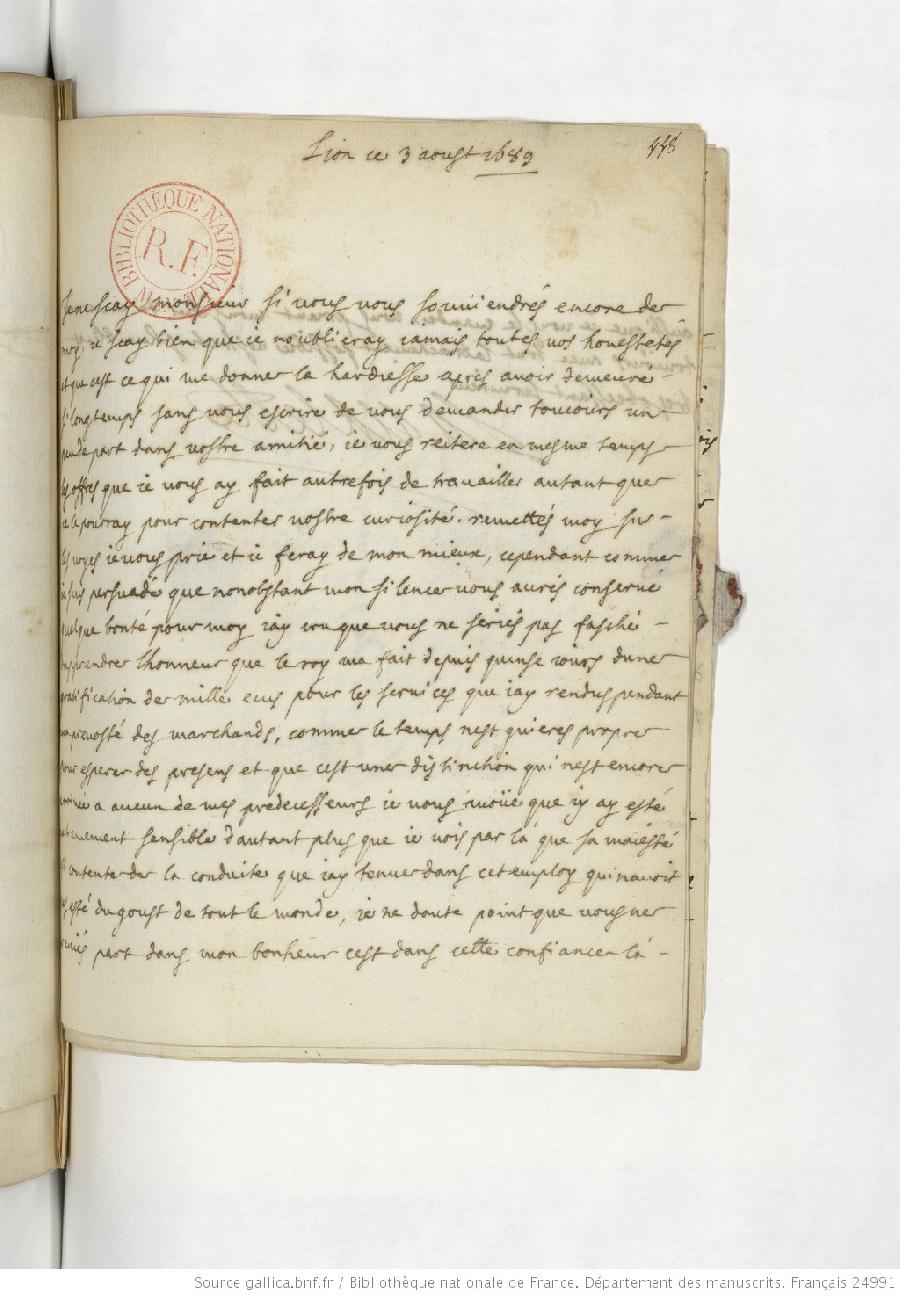 Lion ce 3 aoust 1689
448
BIBLIOTHÈQUE NATIONALE
R.F.
Je ne scay monsieur si vous vous souviendrés encore de
moy, ie scay bien que ie n oublieray iamais toutes vos honestetés
et que cest ce qui me donne la hardiesse apres avoir demeuré
si longtemps sans vous escrire de vous demander tousiours un
peu de part dans vostre amitié, ie vous reitere en mesme temps
les offres que ie vous ay fait autrefois de travailler autant que
ie le pourray pour contenter vostre curiosité. remettés moy sur
les voyes ie vous prie et ie feray de mon mieux, cependant comme
ie suis persuadé que nonobstant mon silence vous aurés conservé
quelque bonté pour moy iay cru que vous ne seriés pas fasché
dapprendre lhonneur que le roy ma fait depuis quinse iours dune
gratification de mille ecus pour les services que iay rendus pendant
ma prevosté des marchands, comme le temps nest guieres propre
pour esperer des presens et que cest une distinction qui nest encore
a aucun de mes predecesseurs ie vous avoüe que iy ay esté
extremement sensible dautant plus que ie vois par là que sa maiesté
est contente de la conduite que iay tenue dans cet employ qui navoit
pas esté du goust de tout le monde, ie ne doute point que vous ne
preniés part dans mon bonheur cest dans cette confiance là
Source gallica.bnf.fr / Bibliothèque nationale de France. Département des manuscrits. Français 24991